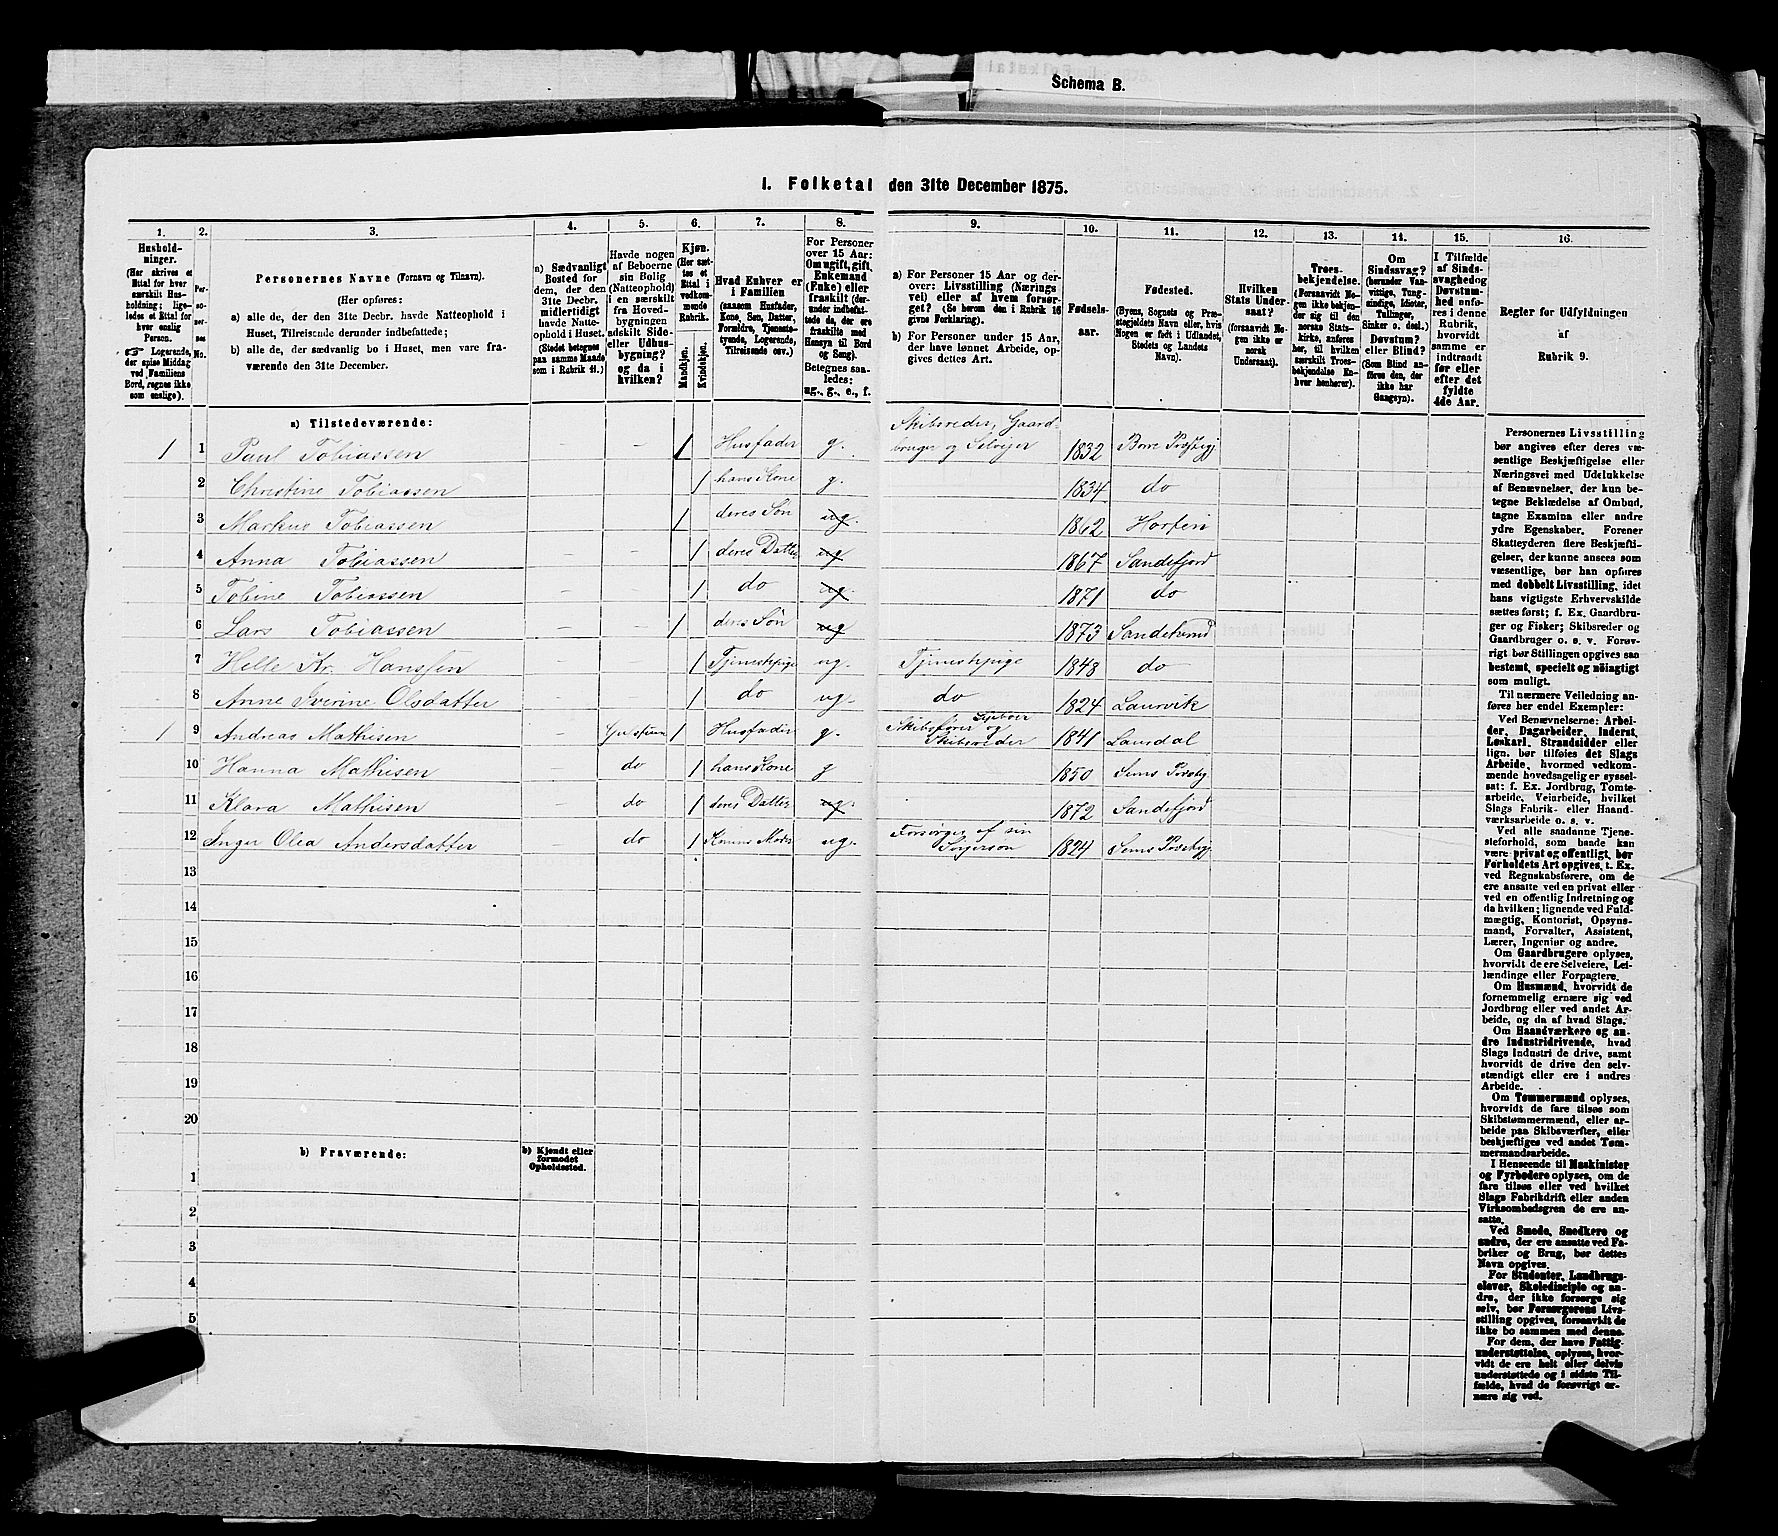 Schema B.
1. Folketal den 31te December 1875.
1. 2. 3. 4. 5. 6. 7. 8. 9. 10. 11. 12. 13. 14. 15. 16.
Hushold-
ninger.
(Her skrives et
Ettal for hver
særskilt Hus-
holdning; lige-
ledes et Ettal for
hver enslig
Person.
☞ Logerende,
der spise Middag
ved Familiens
Bord, regnes ikke
som enslige).
Per-
so-
ner-
nes
No.
Personernes Navne (Fornavn og Tilnavn).
(Her opføres:
a) alle de, der den 31te Decbr. havde Natteophold i
Huset, Tilreisende derunder indbefattede;
b) alle de, der sædvanlig bo i Huset, men vare fra-
værende den 31te December.
a) Sædvanligt
Bosted for
dem, der den
31te Decbr.
midlertidigt
havde Natte-
ophold i Huset.
(Stedet betegnes
paa samme Maade
som i Rubrik 11.)
Havde nogen
af Beboerne
sin Bolig
(Natteophold)
i en særskilt
fra Hoved-
bygningen
adskilt Side-
eller Udhus-
bygning?
og da i
hvilken?
Kjøn.
(Her sæt-
tes et
Ettal i
vedkom-
mende
Rubrik.
Mandkjøn.
Kvindekjøn.
Hvad Enhver er
i Familien
(saasom Husfader,
Kone, Søn, Datter,
Forældre, Tjeneste-
tyende, Logerende,
Tilreisende osv.)
For Personer
over 15 Aar:
Om ugift, gift,
Enkemand
(Enke) eller
fraskilt (der-
under indbefat-
tede de, der ere
fraskilte med
Hensyn til Bord
og Seng).
Betegnes saa-
ledes:
ug., g., e., f.
a) For Personer 15 Aar og der-
over: Livsstilling (Nærings-
vei) eller af hvem forsør-
get? (Se herom den i Rubrik 16
givne Forklaring).
b) For Personer under 15 Aar,
der have lønnet Arbeide, op-
gives dettes Art.
Fødsels-
aar.
Fødested.
(Byens, Sognets og Præ-
stegjeldets Navn eller, hvis
Noget er født i Udlandet,
Stedets og Landets
Navn).
Hvilken
Stats Under-
saat?
(forsaavidt No-
gen ikke er
norsk
Undersaat).
Troes-
bekjendelse.
(Forsaavidt No-
gen ikke bekjen-
der sig til den
norske Stats-
kirke, anføres
her, til hvilken
særskilt Troes-
bekjendelse En-
hver henhører).
Om
Sindssvag?
(herunder Van-
vittige, Tung-
sindige, Idioter,
Tullinger,
Sinker o. desl.)
Døvstum?
eller Blind?
(Som Blind an-
føres den, der
ikke har
Gangsyn).
I Tilfælde
af Sinds-
svaghed og
Døvstum-
hed anfø-
res i denne
Rubrik,
hvorvidt
samme er
indtraadt
før eller
efter det
fyldte
4de Aar.
Regler for Udfyldningen
af
Rubrik 9.
a) Tilstedeværende:
1 1 Paul Tobiassen — — 1 Husfader g. Skibsreder, Gaard-
bruger og Selveier 1832 Borre
2 Christine Tobiassen — — 1 hans Kone g. 1834 do
3 Markus Tobiassen — — 1 deres Søn ug. 1862 Horten
4 Anna Tobiassen — — 1 deres Datter ug 1867 Sandefjord
5 Tobine Tobiassen — — 1 do ug. 1871 do
6 Lars Tobiassen — — 1 deres Søn ug 1873 Sandeherred
7 Helle Kr. Hanssen — — 1 Tjenestepige ug. Tjenestepige 1848 do
8 Anne Iverine Olsdatter — — 1 do ug. do 1824 Laurvik
1 9 Andreas Mathisen — 1 Husfader g. Skibsfører og
Skibsreder 1841 Laurdal
10 Hanna Mathisen — do 1 hans Kone g 1850 Sems
11 Klara Mathisen — do 1 deres Datter ug. 1872 Sandefjord
12 Inger Olea Andersdatter do 1 Konens Moder ug. Forsørges af sin
1824 Sems
13
14
15
16
17
18
19
20
b) Fraværende:
b) Kjendt eller
formodet
Opholdssted.
1
2
3
4
5
Personernes Livsstilling
bør angives efter deres væ-
sentlige Beskjæftigelse eller
Næringsvei med Udelukkelse
af Benævnelser, der kun be-
tegne Beklædelse af Ombud,
tagne Examina eller andre
ydre Egenskaber. Forener
Skatteyderen flere Beskjæfti-
gelser, der kunne ansees som
væsentlige, bør han opføres
med dobbelt Livsstilling, idet
hans vigtigste Erhvervskilde
sættes først; f. Ex. Gaardbru-
ger og Fisker; Skibsreder og
Gaardbruger o. s. v. Forøv-
rigt bør Stillingen opgives saa
bestemt, specielt og nøiagtigt
som muligt.
Til nærmere Veiledning an-
føres her endel Exempler:
Ved Benævnelserne: Arbei-
der, Dagarbeider, Inderst,
Løskarl, Strandsidder eller
lign. bør tilføies det Slags
Arbeide, hvormed vedkom-
mende hovedsagelig er syssel-
sat; f. Ex. Jordbrug, Tomte-
arbeide, Veiarbeide, hvilket
Slags Fabrik- eller Haand-
værksarbeide o. s. v.
Ved alle saadanne Tjene-
steforhold, som baade kan
være privat og offentligt, bør
Forholdets Art opgives, t. Ex.
ved Regnskabsførere, om de
ere ansatte ved en privat eller
ved en offentlig Indretning og
da hvilken; lignende ved Fuld-
mægtig, Kontorist, Opsyns-
mand, Forvalter, Assistent,
Lærer, Ingeniør og andre.
Om Gaardbrugere oplyses,
hvorvidt de ere Selveiere, Lei-
lændinge eller Forpagtere.
Om Husmænd, hvorvidt de
fornemmelig ernære sig ved
Jordbrug eller ved andet Ar-
beide, og da af hvad Slags.
Om Haandværkere og an-
dre Industridrivende, hvad
Slags Industri de drive, samt
hvorvidt de drive den selv-
stændigt eller ere i andres
Arbeide.
Om Tømmermænd oplyses,
hvorvidt de fare tilsøs som
Skibstømmermænd, eller ar-
beide paa Skibsværfter, eller
beskjæftiges ved andet Tøm-
mermandsarbeide.
I Henseende til Maskinister
og Fyrbødere oplyses, om de
fare tilsøs eller ved hvilket
Slags Fabrikdrift eller anden
Virksomhedsgren de ere an-
satte.
Ved Smede, Snedkere og
andre, der ere ansatte ved Fa-
briker og Brug, bør dettes
Navn opgives.
For Studenter, Landbrugs-
elever, Skoledisciple og an-
dre, der ikke forsørge sig
selv, bør Forsørgerens Livs-
stilling opgives, forsaavidt de
ikke bo sammen med denne.
For dem, der have Fattig-
understøttelse, oplyses, hvor-
vidt de ere helt eller delvis
understøttede og i sidste Til-
fælde, hvad de forøvrigt er-
nære sig ved.